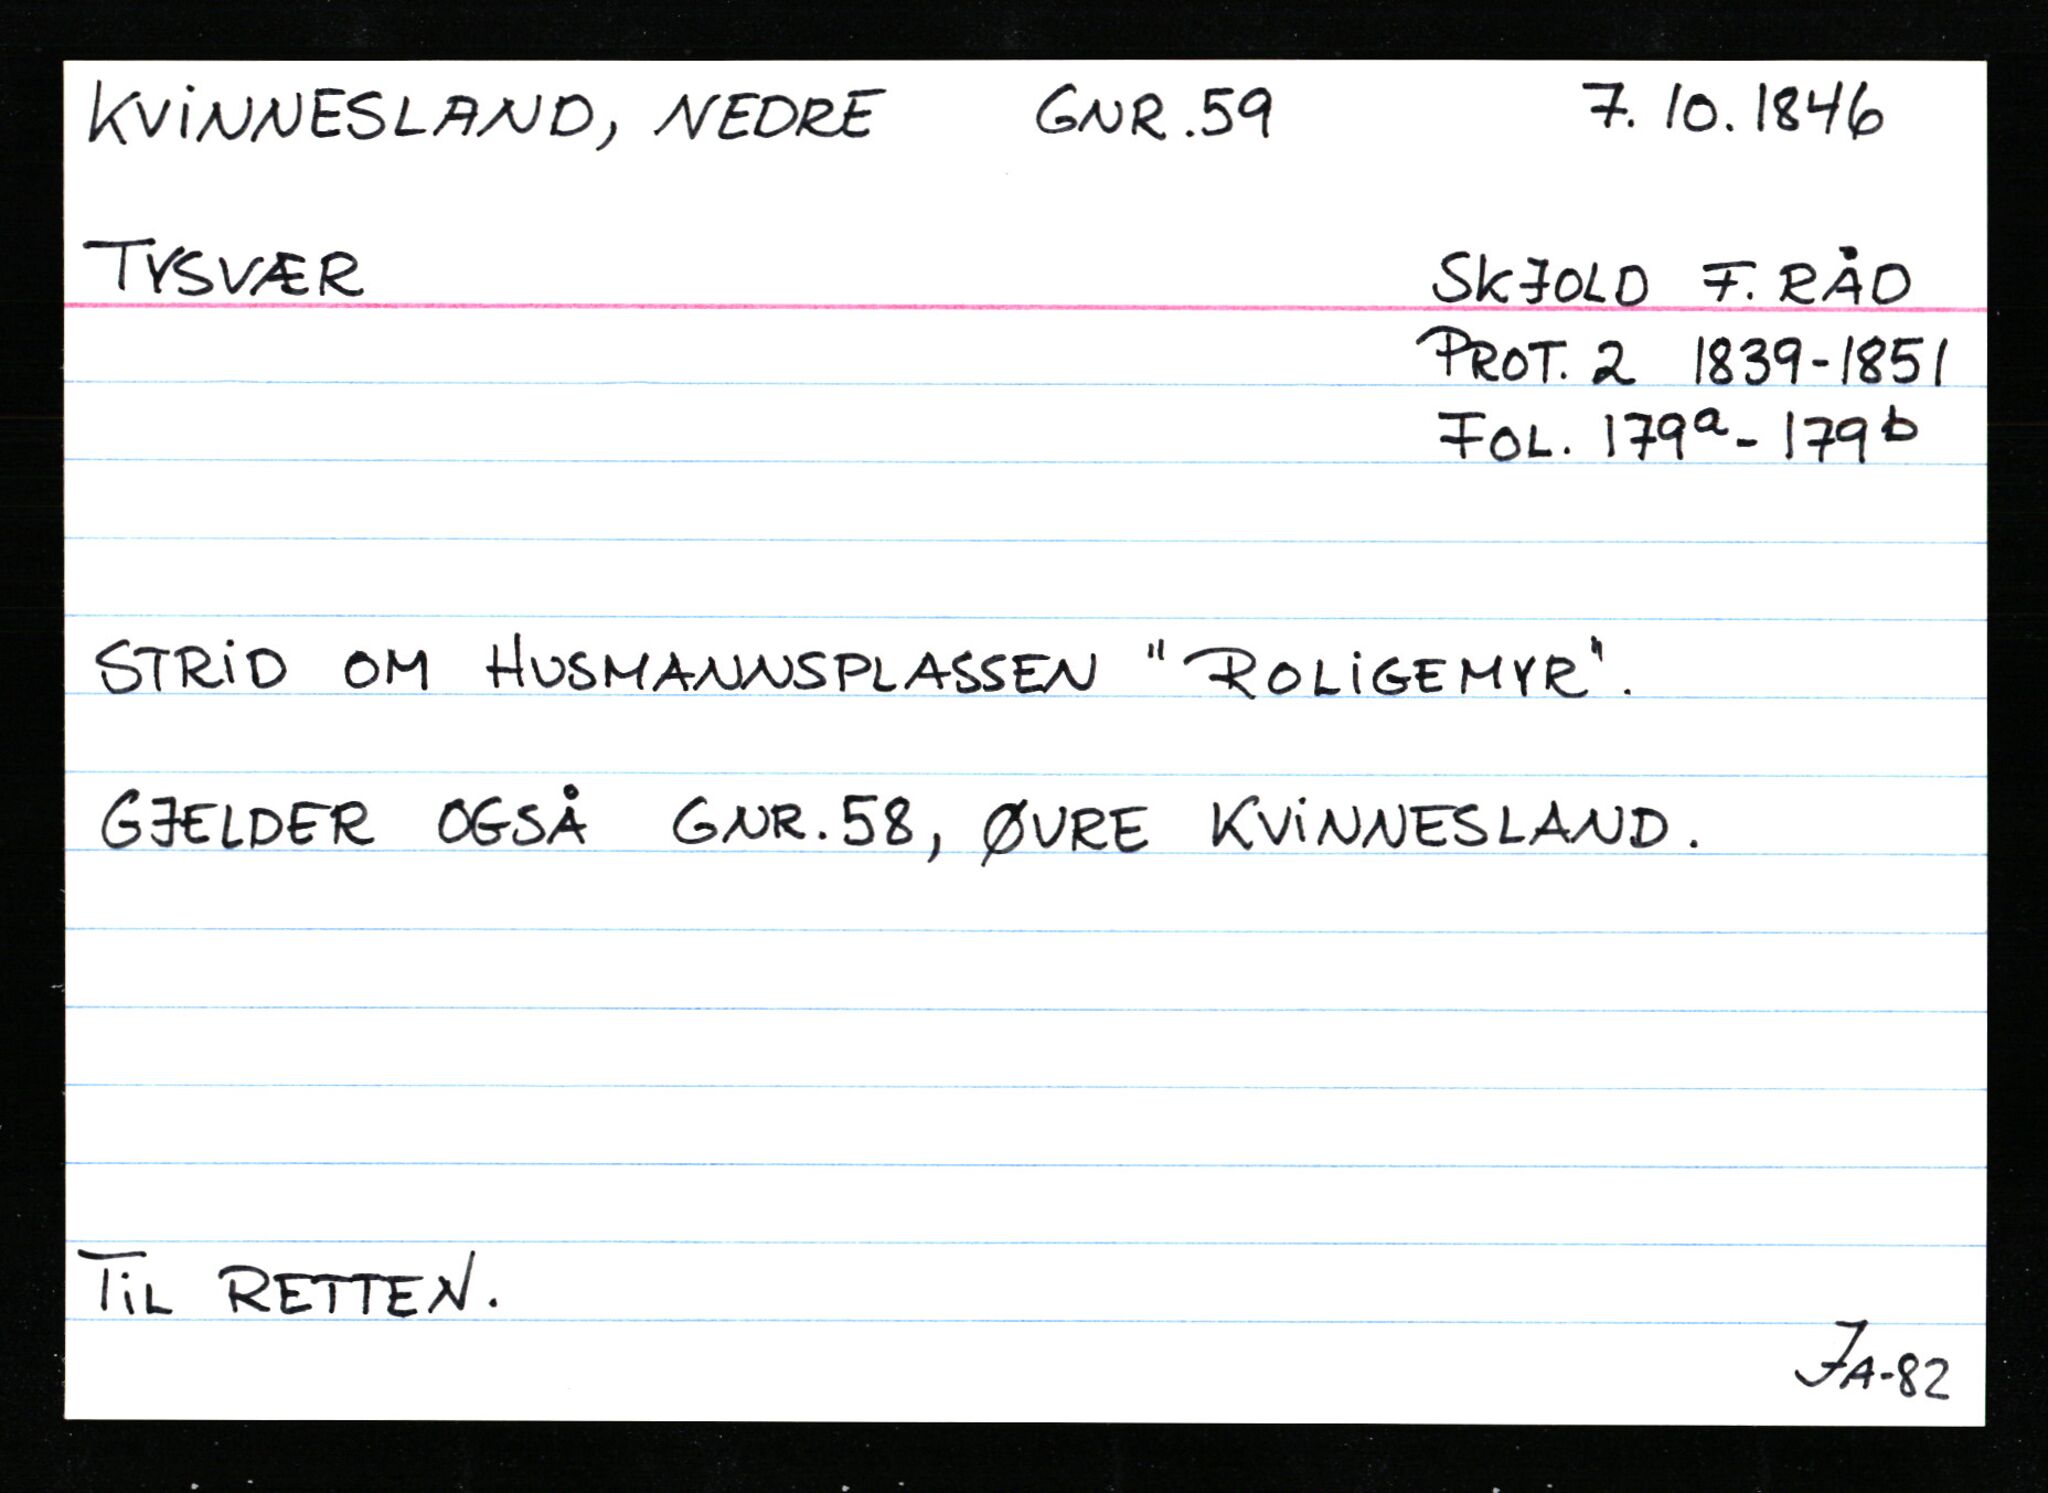 KVINNESLAND, NEDRE GNR. 59 7. 10. 1846
TYSVÆR SKJOLD F. RÅD
PROT. 2 1839-1851
FOL. 179a - 179b
STRID OM HUSMANNSPLASSEN "ROLIGEMYR".
GJELDER OGSÅ GNR. 58, ØVRE KVINNESLAND.
TIL RETTEN.
JA-82